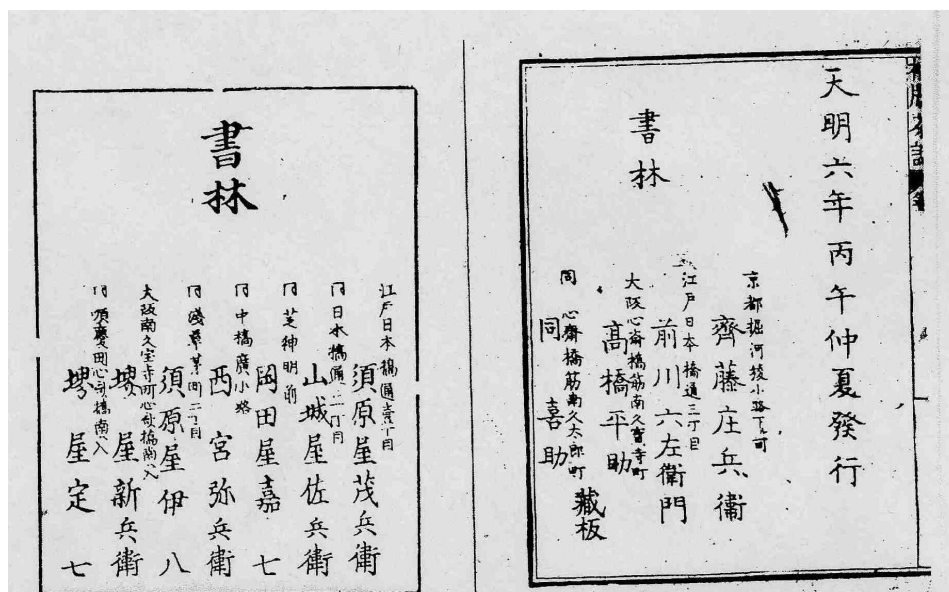 天明六年丙午仲夏發行
書林
京都堀河綾小路下ル町
齊藤庄兵衞
江戸日本橋通三丁目
前川六左衞門
大阪心斎橋筋南久寶寺町
髙橋平助
同 心齋橋筋南久太郎町
同 喜助
藏板
書林
江戸日本橋通壹丁目
須原屋茂兵衞
同日本橋通二丁目
山城屋佐兵衞
同芝神明前
岡田屋嘉七
同中橋廣小路
西宮弥兵衞
同淺草茅町二丁目
須原屋伊八
大阪南久宝寺町心斎橋南入
堺屋新兵衞
同順慶町心斎橋南入
堺屋定七